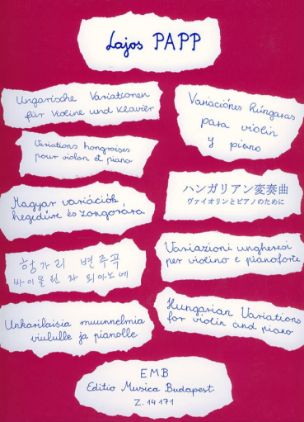 Lajos PAPP
Ungarische Variationen
für Violine und Klavier
Variaciónes Húngaras
para violín
y piano
Variations hongroises
pour violon et piano
Magyar variációk
hegedűre és zongorára
ハンガリアン変奏曲
ヴァイオリンとピアノのために
헝가리 변주곡
바이올린과 피아노에
Variazioni ungheresi
per violino e pianoforte
Unkarilaisia muunnelmia
viululle ja pianolle
Hungarian Variations
for violin and piano
EMB
Editio Musica Budapest
Z. 14 171